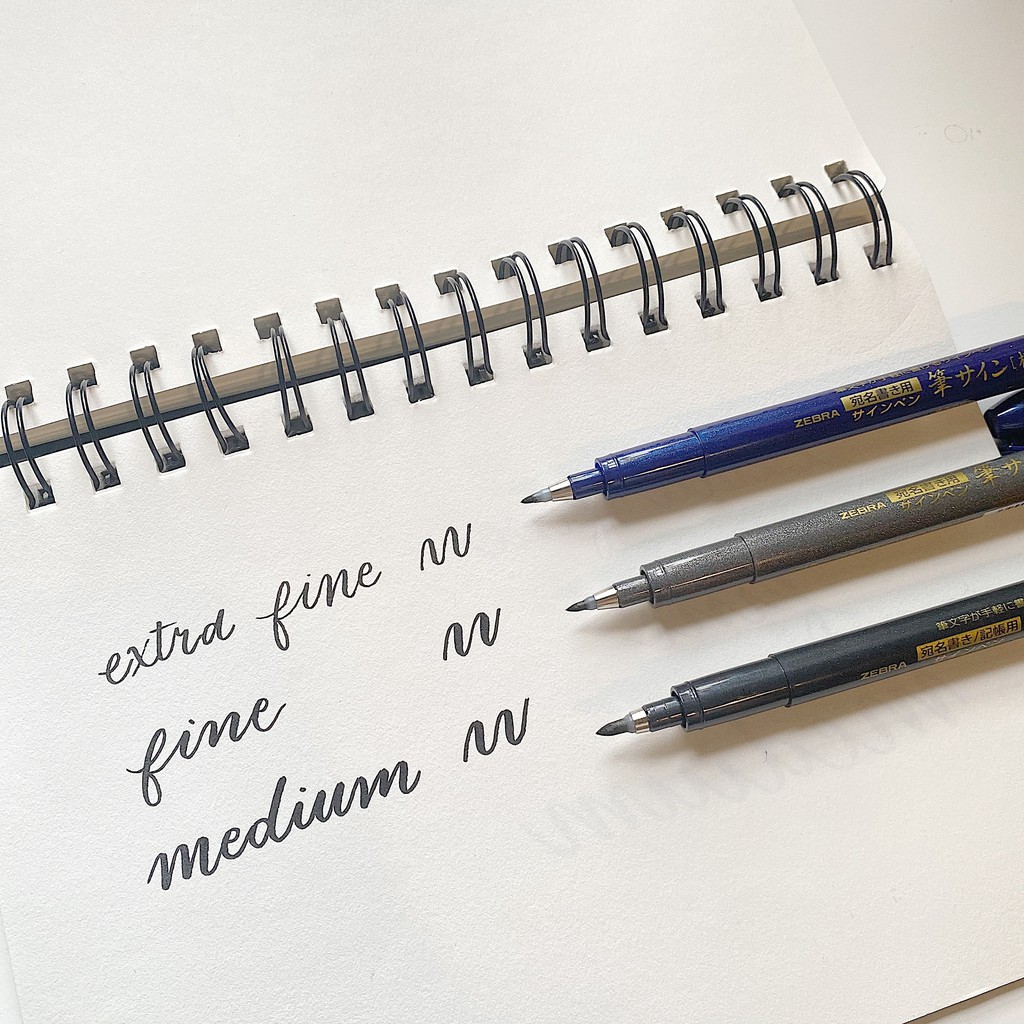 extra fine
fine
medium
ZEBRA 宛名書き用 サインペン 筆サイン
ZEBRA 宛名書き用 サインペン 筆サ
筆文字が手軽に書
ZEBRA 宛名書き/記帳用 サインペン